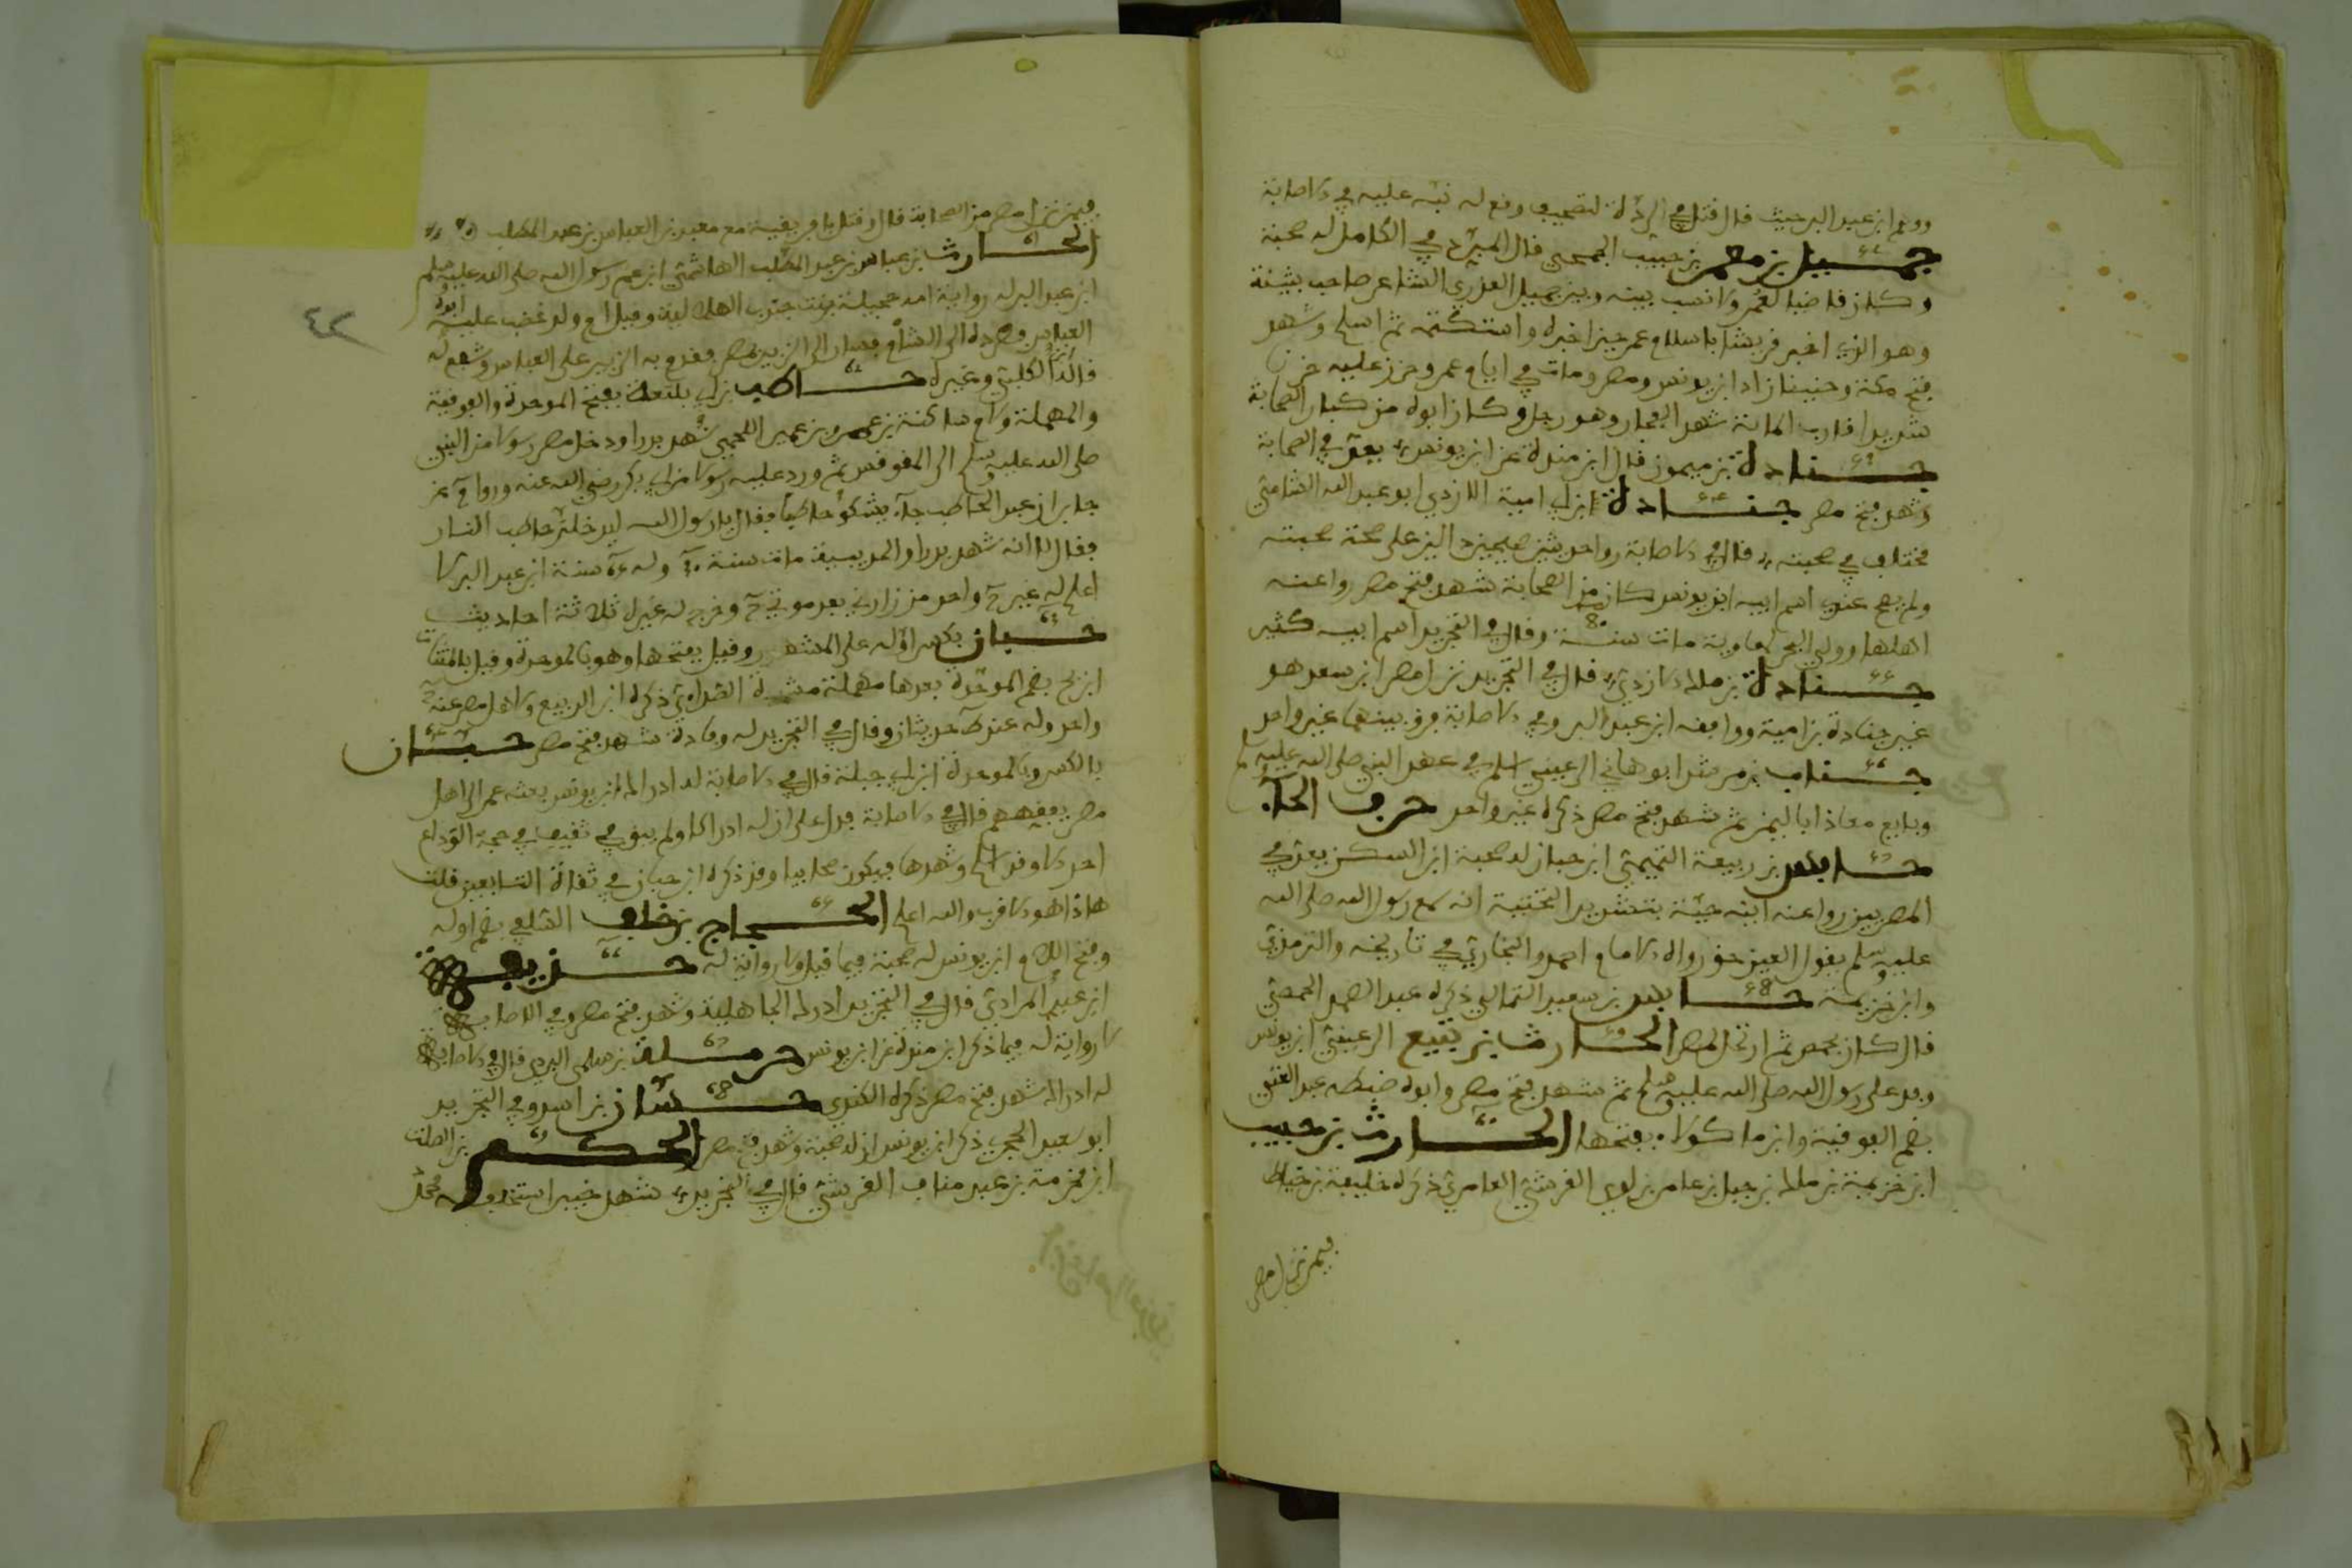 ووهم ابن عبد البر حيث قال قتل في الردة لتصحيف وقع له نبه عليه في الاصابة
جميل بن معمر بن حبيب الجمحي قال المبرد في الكامل له صحبة
وكان خاصا لعمر ولا نسب بينه وبين جميل العذري الشاعر صاحب بثينة
وهو الذي اخبر قريشا باسلام عمر حين اخبره واستكتمه ثم اسلم وشهد
فتح مكة وحنينا زاد ابن يونس ومصر ومات في ايام عمر وحزن عليه حزنا
شديدا قارب المائة شهد الفجار وهو رجل وكان ابوه من كبار الصحابة
جنادة بن ميمون قال ابن مندة عن ابن يونس يعد في الصحابة
وشهد فتح مصر جنادة ابن ابي امية الازدي ابو عبد الله الشامي
مختلف في صحبته قال في الاصابة روا حديثين صحيحين دالين على صحة صحبته
ولم يصح عندي اسم ابيه ابن يونس كان من الصحابة شهد فتح مصر روا عنه
اهلها وولي البحر لمعاوية مات سنة 80 وقال في التجريد اسم ابيه كثير
جنادة بن مالك الازدي قال في التجريد نزل مصر ابن سعد هو
غير جنادة بن امية ووافقه ابن عبد البر وفي الاصابة فرق بينهما غير واحد
جناب بن مرثد ابو هانئ الرعيني اسلم في عهد النبي صلى الله عليه وسلم
وبايع معاذا باليمن ثم شهد فتح مصر ذكره غير واحد حرف الحاء
حابس بن ربيعة التميمي ابن حبان له صحبة ابن السكن يعد في
المصريين روا عنه ابنه حية بتشديد التحتية انه سمع رسول الله صلى الله
عليه وسلم يقول العين حق رواه الامام احمد والبخاري في تاريخه والترمذي
وابن خزيمة حابس بن سعيد الثمالي ذكره عبد الصمد الحمصي
قال كان بحمص ثم ارتحل لمصر الحارث بن تبيع الرعيني ابن يونس
وفد على رسول الله صلى الله عليه وسلم ثم شهد فتح مصر وابوه ضبطه عبد الغني
بضم الفوقية وابن ماكولاء بفتحها الحارث بن حبيب
ابن خزيمة بن مالك بن حبل بن عامر بن لوي القرشي العامري ذكره خليفة بن خياط
فيمن نزل مصر
٤٢
فيمن نزل مصر من الصحابة قال وقتل بافريقية مع معبد بن العباس بن عبد المطلب
الحارث بن عباس بن عبد المطلب الهاشمي ابن عم رسول الله صلى الله عليه وسلم
ابن عبد البر له رواية امه حجيلة بنت جندب الهلالية وقيل ام ولد غضب عليه ابوه
العباس فطرده الى الشام فسار الى الزبير بمصر فقدم به الزبير على العباس وشفع له
قاله الكلبي وغيره حاطب بن ابي بلتعة بفتح الموحدة والفوقية
والمهملة ولام ساكنة بن عمرو بن عمير اللخمي شهد بدرا ودخل مصر رسولا من النبي
صلى الله عليه وسلم الى المقوقس ثم ورد عليه رسولا من ابي بكر رضي الله عنه وروا م عن
جابر ان عبد الحاطب جاء يشكو حاطبا فقال يا رسول الله ليدخلن حاطب النار
فقال لا انه شهد بدرا والحديبية مات سنة ٣٠ وله ٦٥ سنة ابن عبد البر لا
اعلم له غير ح واحد من زارني بعد موتي ح وخرج له غيره ثلاثة احاديث
حبان بكسر اوله على المشهور وقيل بفتحها وهو بالموحدة وقيل بالمثناة
ابن بح بضم الموحدة بعدها مهملة مشددة الصدائي ذكره ابن الربيع ولاهل مصر عنه ح
واحد وله عند ط حديثان وقال في التجريد له وفادة شهد فتح مصر حبان
بالكسر وبالموحدة ابن ابي جبلة قال في الاصابة له ادراك ابن يونس بعثه عمر الى اهل
مصر يفقههم قال في الاصابة فدل على ان له ادراكا ولم يبق في ثقيف في حجة الوداع
احد الا وقد اسلم وشهدها فيكون صحابيا وقد ذكره ابن حبان في ثقاة التابعين قلت
هاذا هو الاقرب والله اعلم الحجاج بن خلي السلفي بضم اوله
وفتح اللام ابن يونس له صحبة فيما قيل ولا رواية له
ابن عبد المرادي قال في التجريد ادرك الجاهلية وشهد فتح مصر وفي الاصابة
لا رواية له فيما ذكر ابن مندة عن ابن يونس حرملة بن سلمى قال في الاصابة
له ادراك شهد فتح مصر ذكره الكندي حسان بن اسد وفي التجريد
ابو سعيد الحجري ذكر ابن يونس ان له صحبة وشهد فتح مصر الحكم بن الصلت
ابن مخرمة بن عبد مناف القرشي قال في التجريد شهد خيبر استخلفه محمد